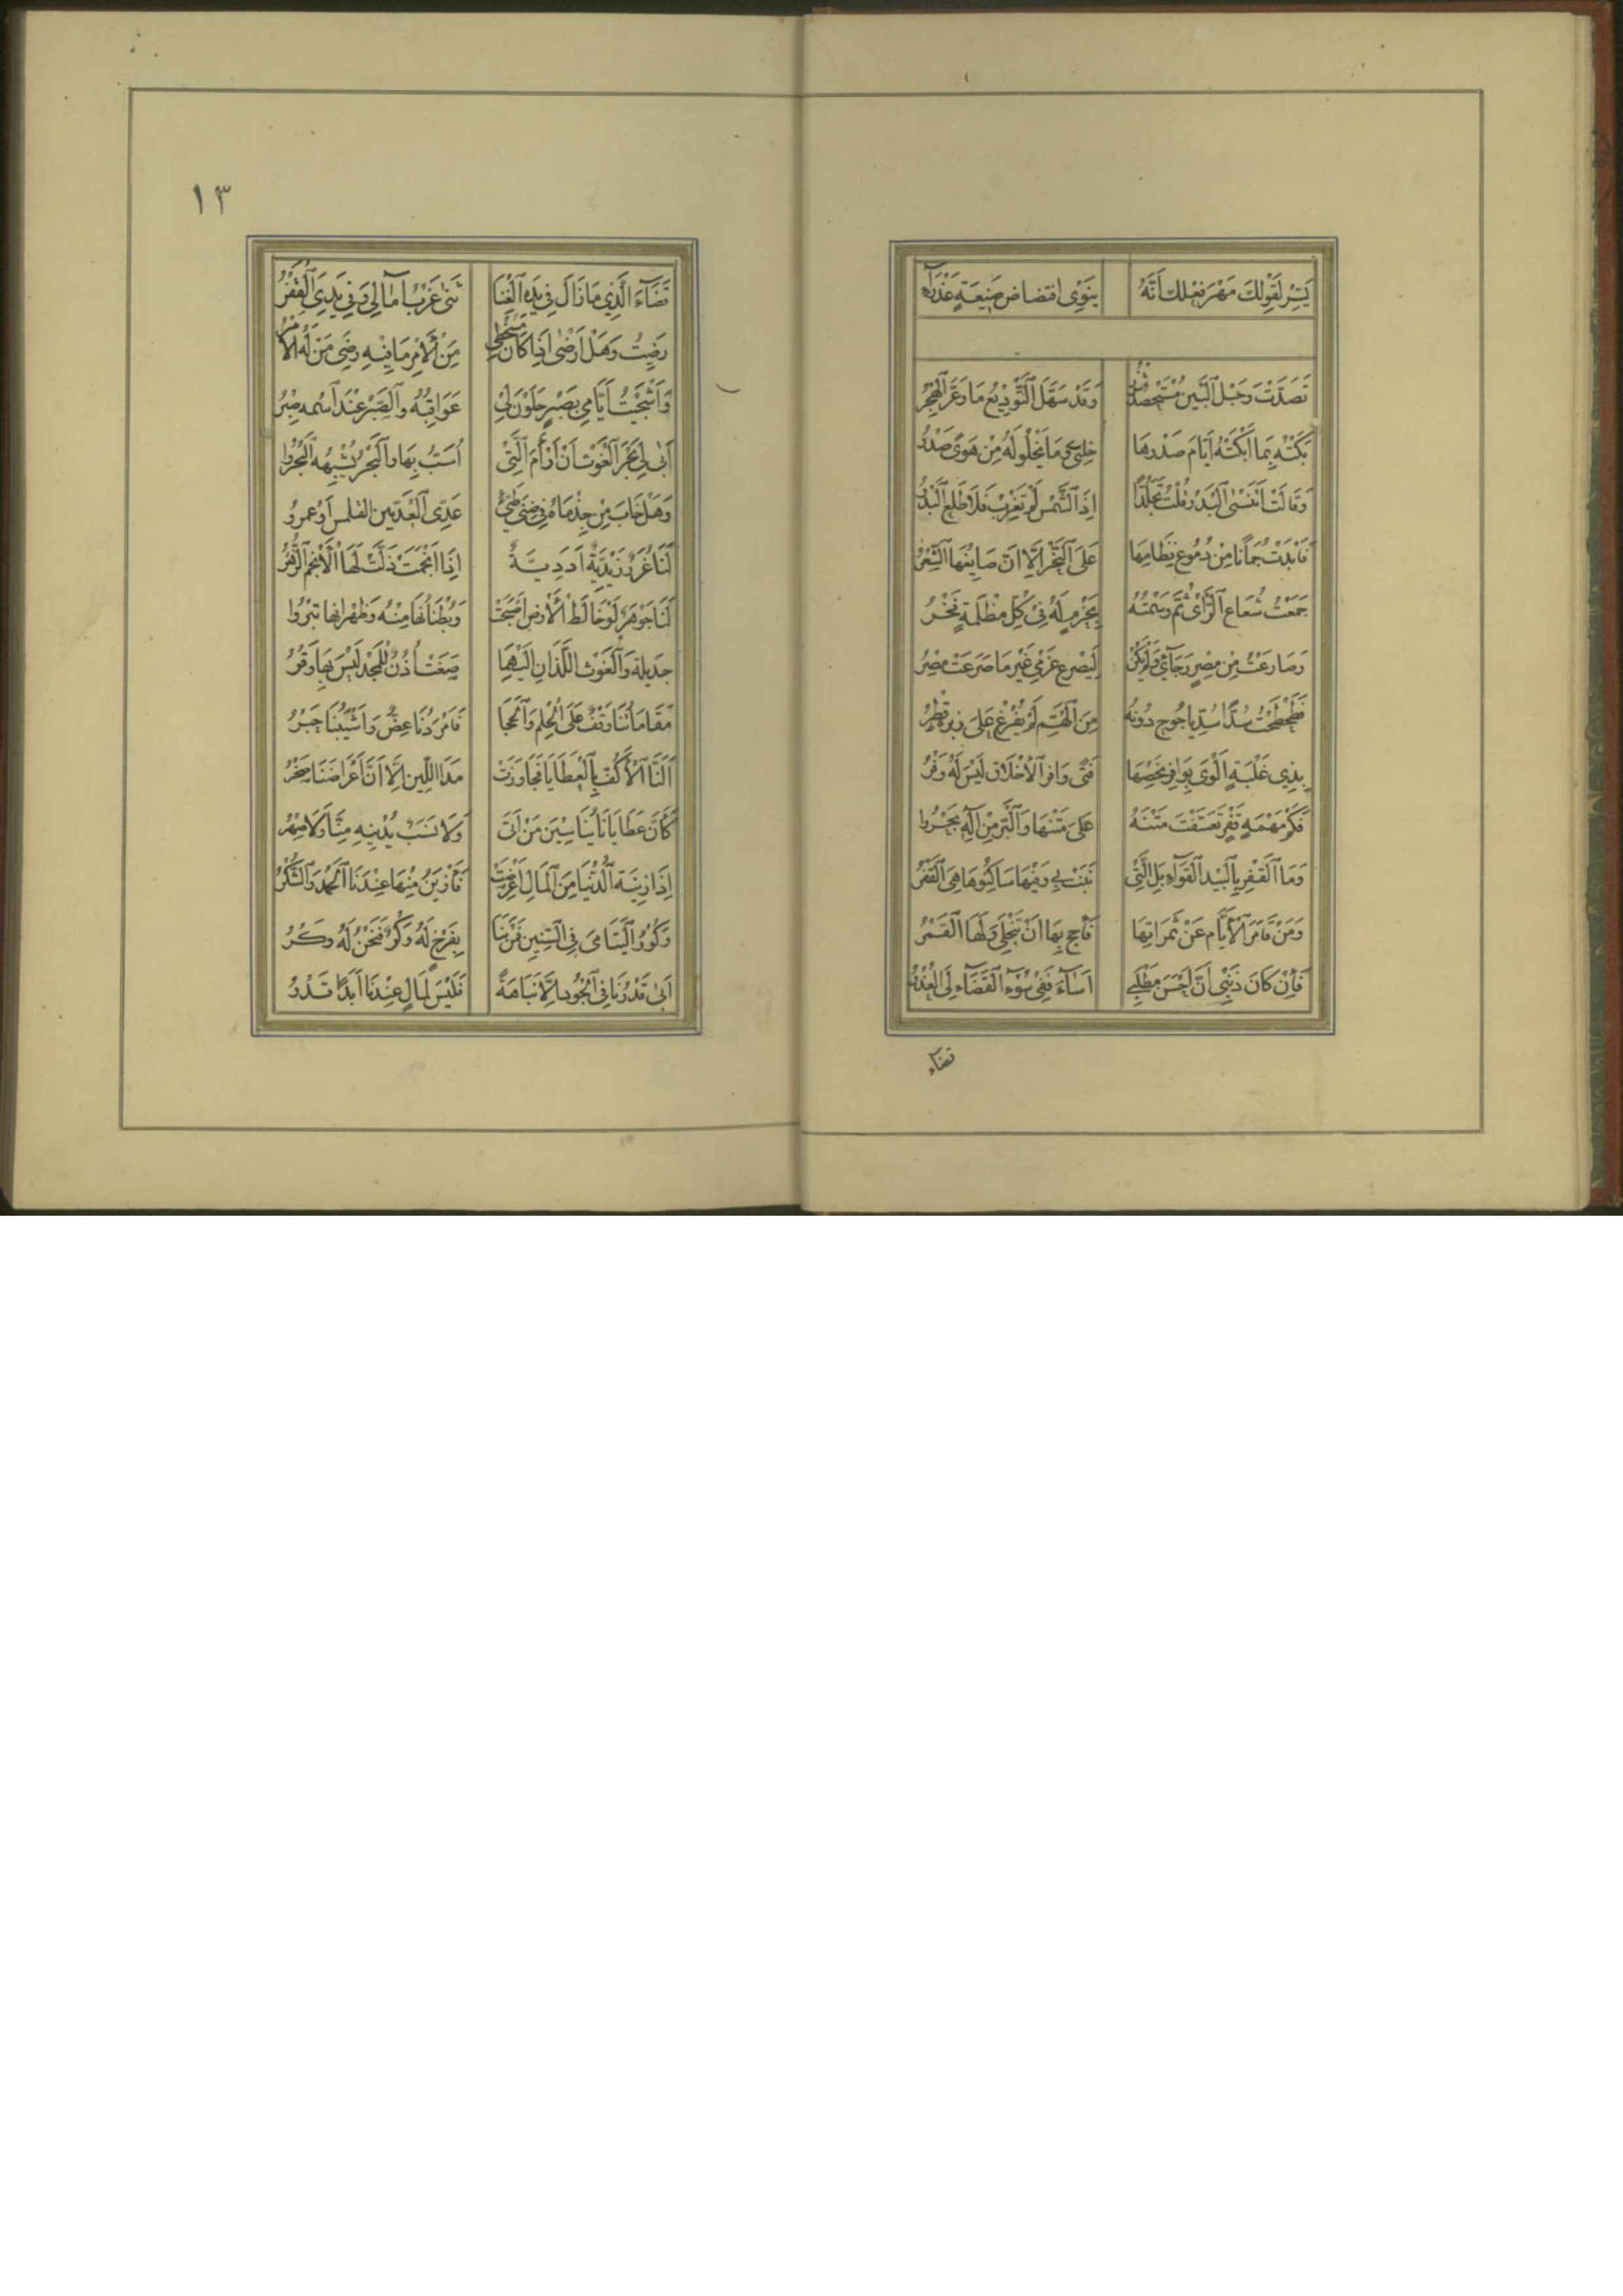 يَسِّرْ لِقَوْلِكَ مَهْرَ فِعْلِكَ اَنَّهُ يَنْوِى اقتضاض صَنِيعَةٍ عَذْرَآءِ
تَصَدَّتْ وَحَبْلُ اَلْبَيْنِ مُسْتَحْصِدٌ شَزْرُ وَقَدْ سَهَّلَ اَلتَّوْدِيعُ مَا وَعَّرَ اَلْهَجْرُ
بَكَتْهُ بِمَا اَبْكَتْهُ اَيَّامَ صَدْرُهَا خَلِىٌّ وَمَا يَخْلُو لَهُ مِنْ هَوًى صَدْرُ
وَقَالَتْ اَتَنْسَى اَلْبَدْرَ قُلْتُ تَجَلُّدًا اِذَ اَلشَّمْسُ لَمْ تَغْرُبْ فَلَا طَلَعَ اَلْبَدْرُ
فَاَبْدَتْ جُمَانًا مِنْ دُمُوعٍ نِظَامِهَا عَلَى اَلنَّحْرِ اِلَّا اَنَّ صَايِغَهَا اَلشَّفْرُ
جَمَعْتُ شُعَاعَ اَلرَّأْىِ ثُمَّ وَسَمْتُهُ بِحَزْمٍ لَهُ فِى كُلِّ مُظْلِمَةٍ فَجْرُ
وَصَارَعْتُ مِنْ مِصْرٍ رَجَآئِى وَلَمْ يَكُنْ لِيَصْرَعَ عَزْمِى غَيْرَ مَا صَرَعَتْ مِصْرُ
فَطَحْطَحْتُ سُدًّا سُدِّ يَاجُوج دُونَهُ مِنَ اَلْهَمِّ لَمْ يُفْرَغْ عَلَى زبره قِطْرُ
بِذِى عَلْبَةٍ اَلْوَى بِوَافِرِ نَحْضِهَا فَتًى وَافِرُ اَلْاَخْلَاقِ لَيْسَ لَهُ وَفْرُ
فَكَمْ مَهْمَهٍ قَفْرٍ تَعَسَّفْتُ مَتْنَهُ عَلَى مَتْنِهَا وَاَلْبَرُّ مِنْ آلِهِ بَحْرُ
وَمَا اَلْقَفْرُ بِاَلْبِيدِ اَلْقَوَآءِ بَلِ اَلَّتِى نَبَتْ بِي وَفِيهَا سَاكِنُوهَا هِىَ اَلْقَفْرُ
وَمَنْ قَامَرَ اَلْاَيَّامَ عَنْ ثَمَرَاتِهَا فَاَحْجِ بِهَا اَنْ تَنْجَلِى وَلَهَا اَلْقَمْرُ
فَاِنْ كَانَ ذَنْبِى اَنَّ اَحْسَنَ مَطْلَبِى اَسَآءَ فَفِى سُوْءِ اَلْقَضَآءِ لِىَ اَلْعُذْرُ
قضآء
١٣
قَضَآءَ الَّذِي مَا زَالَ فِي يَدِهِ اَلْغِنَا ثَنَى غَرْبَ آمَالِي وَفِي يَدِيَ اَلْفَقْرُ
رَضِيتُ وَهَلْ اَرْضَى اِذَا كَانَ مُسْخِطِي مِنَ اَلْاَمْرِ مَا فِيهِ رِضَى مَنْ لَهُ الْاَمْرُ
وَاَشْجَيْتُ اَيَّامِي بِصَبْرٍ حَلَوْنَ لِي عَوَاقِبُهُ وَاَلصَّبْرُ عِنْدَ اَسْمِهِ صَبْرُ
اَبَى لِي نَجْرُ اَلْغَوْثِ اَنْ اَرْاَمَ اَلَّتِي اُسَبُّ بِهَا وَاَلنَّجْرُ يُشْبِهُهُ اَلنَّجْرُ
وَهَلْ خَابَ مِنْ جِذْمَاهُ فِي ضِئْضِئِ طَيِّئٍ عَدِىُّ اَلْعَدِيّينَ القلمس اَوْ عَمْرُو
لَنَا غُرَرٌ زَيْدِيَّةٌ اُدَدِيَّةٌ اِذَا نَجَمَتْ ذَلَّتْ لَهَا اَلْاَنْجُمُ الزُّهْرُ
لَنَا جَوْهَرٌ لَوْ خَالَطَ اَلْاَرْضَ اَصْبَحَتْ وَبُطْنَانُهَا مِنْهُ وَظَهْرَانُهَا تِبْرُ
جَدِيلَةُ وَاَلْغَوْثُ اللَّذَانِ اِلَيْهِمَا صَغَتْ اُذُنٌ لِلْمَجْدِ لَيْسَ بِهَا وَقْرُ
مَقَامَاتُنَا وَقْفٌ عَلَى اَلْحِلْمِ وَاَلْحِجَا فَاَمْرَدُنَا عِضٌّ وَاَشْيَبُنَا حَبْرُ
اَلَنَّا اَلْاَكُفَّ بِاَلْعَطَايَا فَجَاوَزَتْ مَدَا اللِّينِ اِلَّا اَنَّ اَعْرَاضَنَا صَخْرُ
كَاَنَّ عَطَايَانَا يُنَاسِبْنَ مَنْ اَتَى وَلَا نَسَبٌ يُدْنِيهِ مِنَّا وَلَا صِهْرُ
اِذَا زِينَةُ اَلدُّنْيَا مِنَ اَلْمَالِ اَعْرَضَتْ فَاَزْيَنُ مِنْهَا عِنْدَنَا اَلْحَمْدُ وَالشُّكْرُ
وَكُورُ اَلْيَتَامَى فِى اَلسِّنِينَ فَمَنْ نَبَا بِفَرْخٍ لَهُ وَكْرٌ فَنَحْنُ لَهُ وَكْرُ
اَبَى قَدْرُنَا فِى اَلْجُودِ اِلَّا نَبَاهَةً فَلَيْسَ لِمَالٍ عِنْدَنَا اَبَدًا قَدْرُ